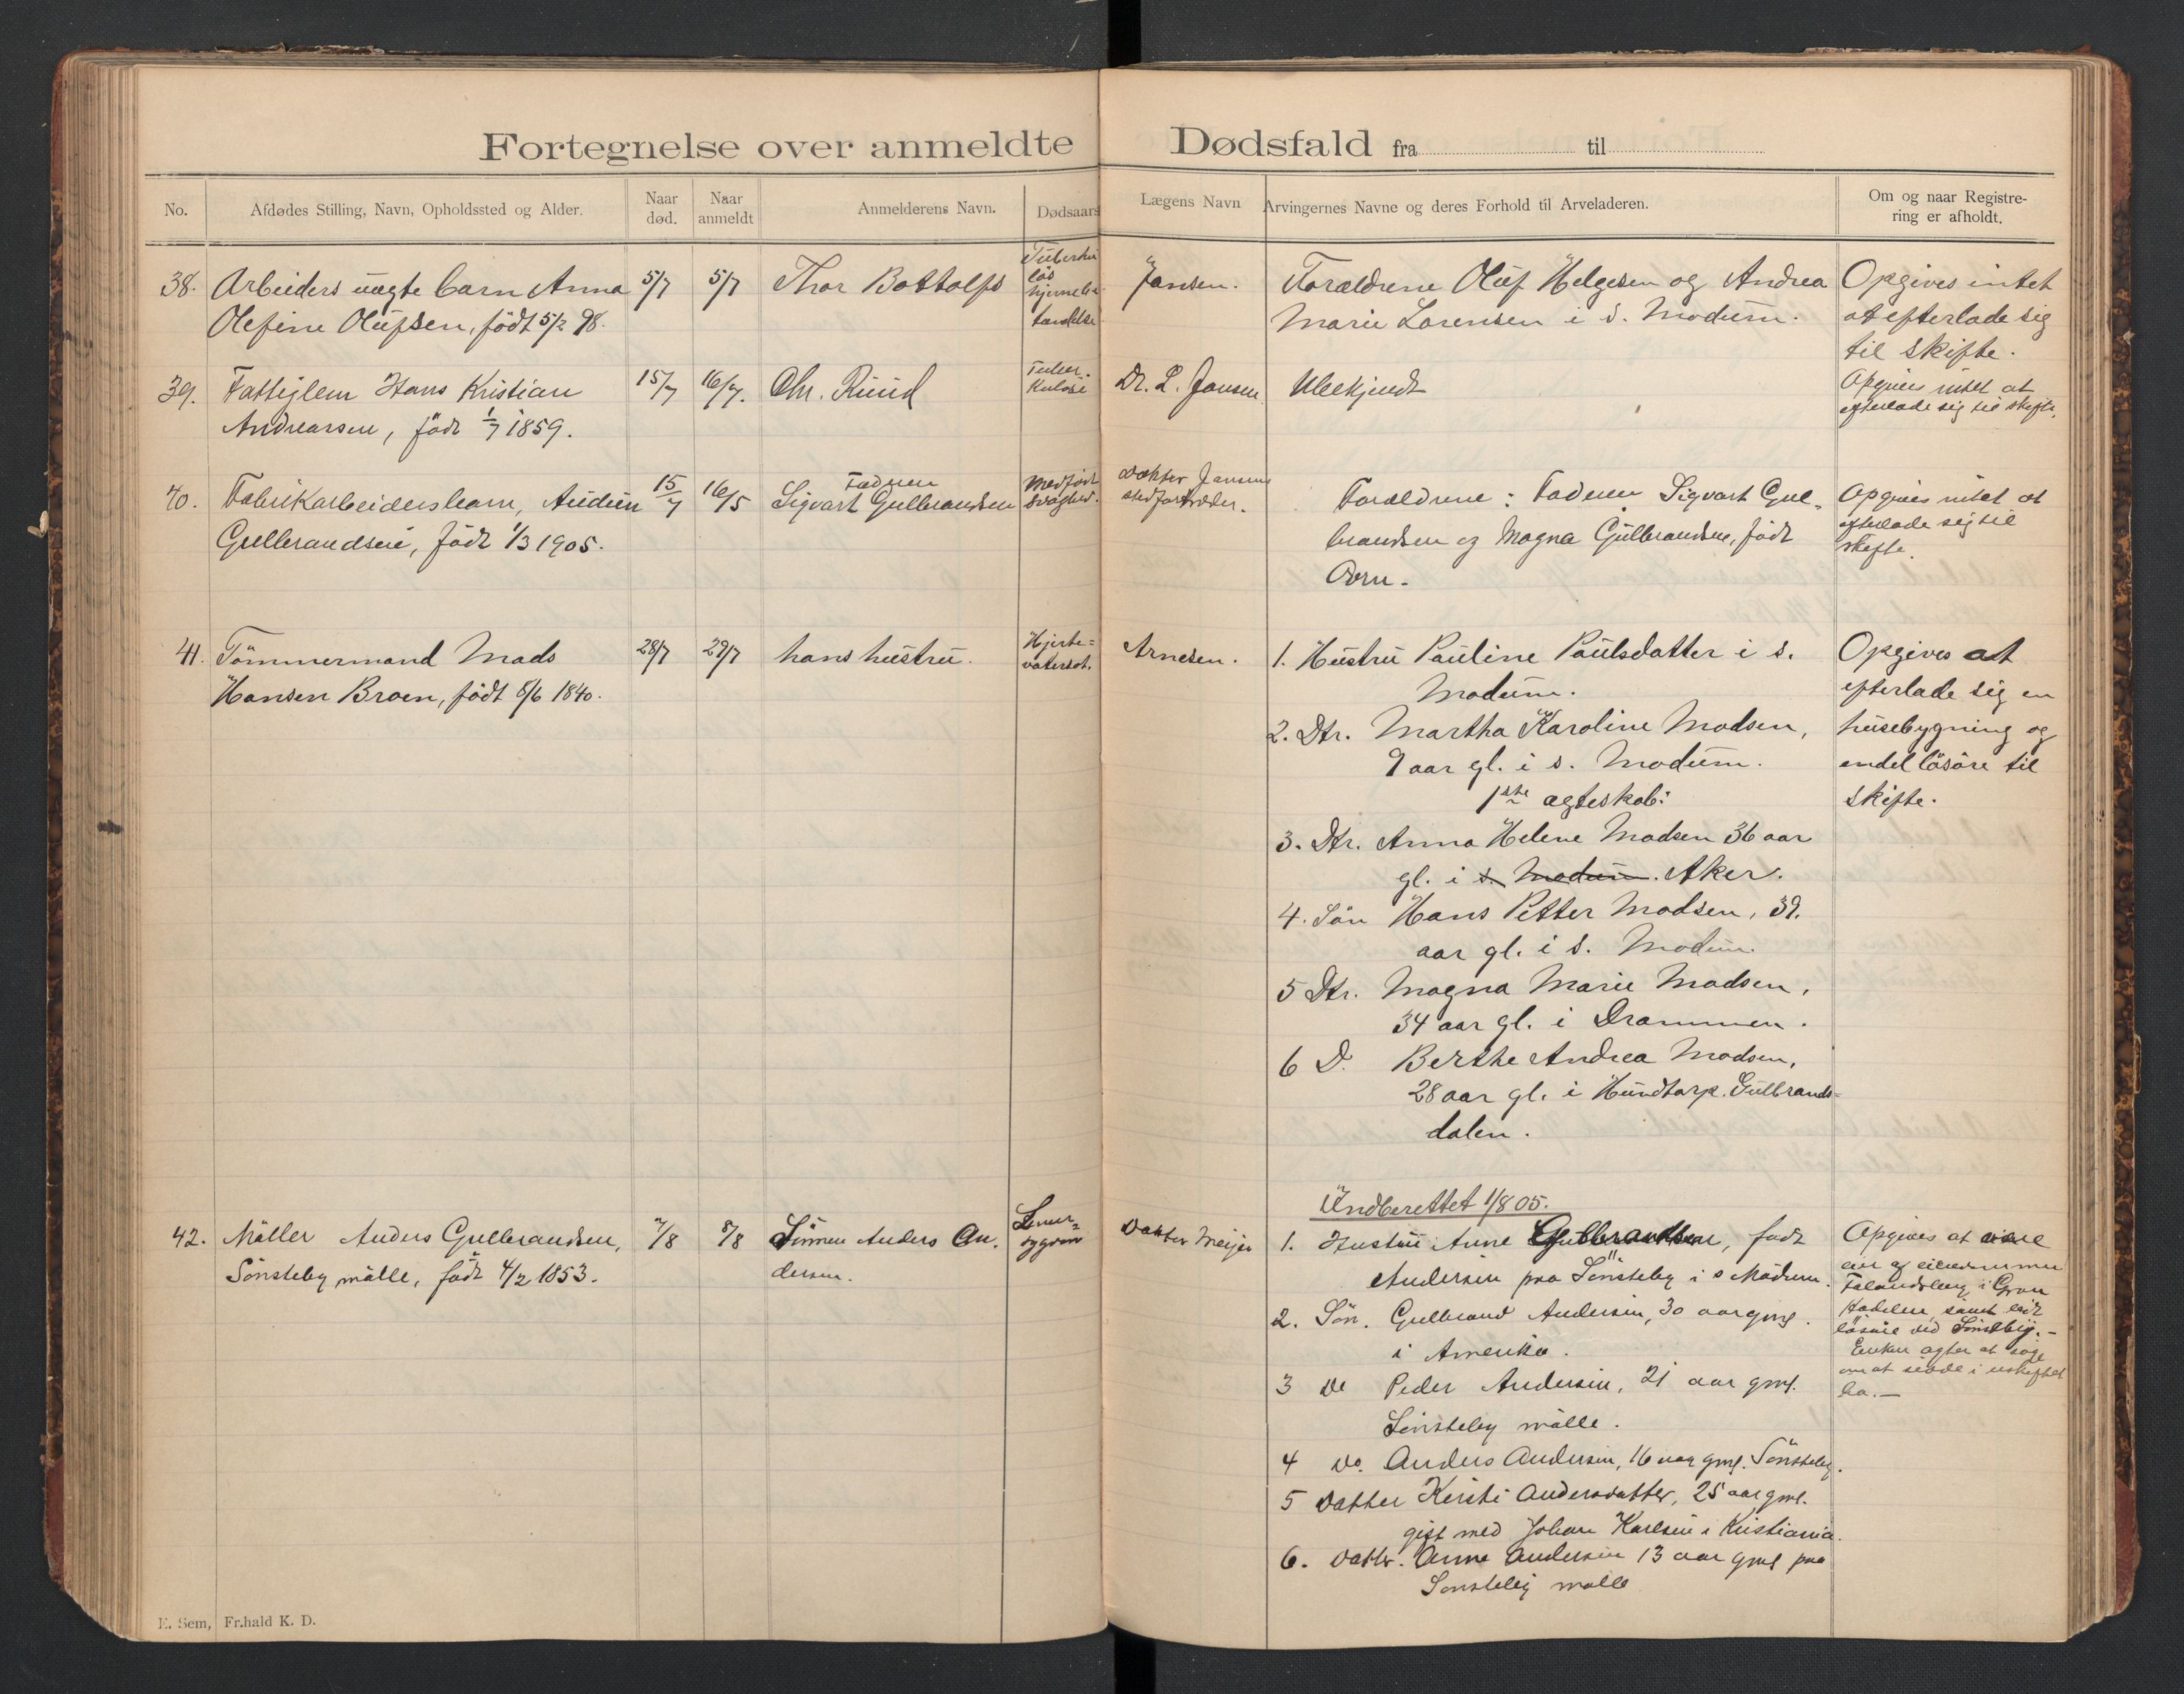 Fortegnelse over anmeldte Dødsfald fra til
No.
Afdødes Stilling, Navn, Opholdssted og Alder.
Naar død.
Naar anmeldt
Anmelderens Navn.
Dødsaars
Lægens Navn
Arvingernes Navne og deres Forhold til Arveladeren.
Om og naar Registre-
ring er afholdt.
38. Arbeiders uægte barn Anna
Olefine Olufsen, født 5/2 98.
5/7
5/7
Thor Bottolfs
Tuberku
løs
hjernebe
tændelse
Jansen.
Forældrene Oluf Helgesen og Andrea
Marie Lorensen i S. Modum.
Opgives intet
at efterlade sig
til skifte.
39. Fattiglem Hans Kristian
Andreassen, födt 1/7 1859.
15/7
16/7.
Chr. Ruud
Tuber-
kulose
Dr. L. Jansen
Ubekjendt
Opgives intet at
efterlade sig til skifte.
40. Fabrikarbeidersbarn, Audun
Gulbrandsen, født 1/3 1905.
15/7
16/5
Faderen
Sigvart Gulbrandsen
Medfödt
svaghed.
Doktor Jansens
stedfortræder.
Forældrene: Faderen Sigvart Gul-
brandsen og Magna Gulbrandsen, født
Opgives intet at
efterlade sig til
skifte.
41. Tömmermand Mads
Hansen Braen, født 8/6 1840.
28/7
29/7
hans hustru.
Hjerte=
vatersot.
Arnesen.
1. Hustru Pauline Paulsdatter i S.
Modum.
2. Dtr. Martha Karoline Madsen,
9 aar gl. i S. Modum.
1ste ægteskab:
3. Dtr. Anna Helene Madsen 36 aar
gl. i S. Modum. Aker.
4. Sön Hans Petter Madsen, 39.
aar gl. i S. Modum.
5 Dtr. Magna Marie Madsen,
34 aar gl. i Drammen.
6 D. Berthe Andrea Madsen,
28 aar gl. i Hundtorp. Gulbrands=
dalen.
Opgives at
efterlade sig en
husebygning og
endel lösöre til
skifte.
Undberettet 1/8 05.
42. Möller Anders Gulbrandsen,
Sönsteby mölle, födt 4/2 1853.
7/8
8/8
Sönnen Anders An.
dersen.
Lever=
sygdom
Doktor Meijer
1. Hustru Anne Gulbrandsen, födt
Andersen paa Sönsteby i S Modum.
2. Sön. Gulbrand Andersen, 30 aar gml.
i Amerika.
3 do Peder Andersen, 21 aar gml.
Sönsteby mölle.
4 do. Anders Andersen, 16 aar gml. Sönsteby.
5 Datter Kirsti Andersdatter, 25 aar gml.
gift med Johan Karlsen i Kristiania.
6. Datter. Anne Andersen 13 aar gml paa
Sönsteby mölle
Opgives at være
eier af eiendommen
i Gran
Hadeland, samt lidt
lösöre ved Sönsteby.-
Enken agter at söge
om at sidde i uskiftet
bo.-
E. Sem, Fr.hald K. D.